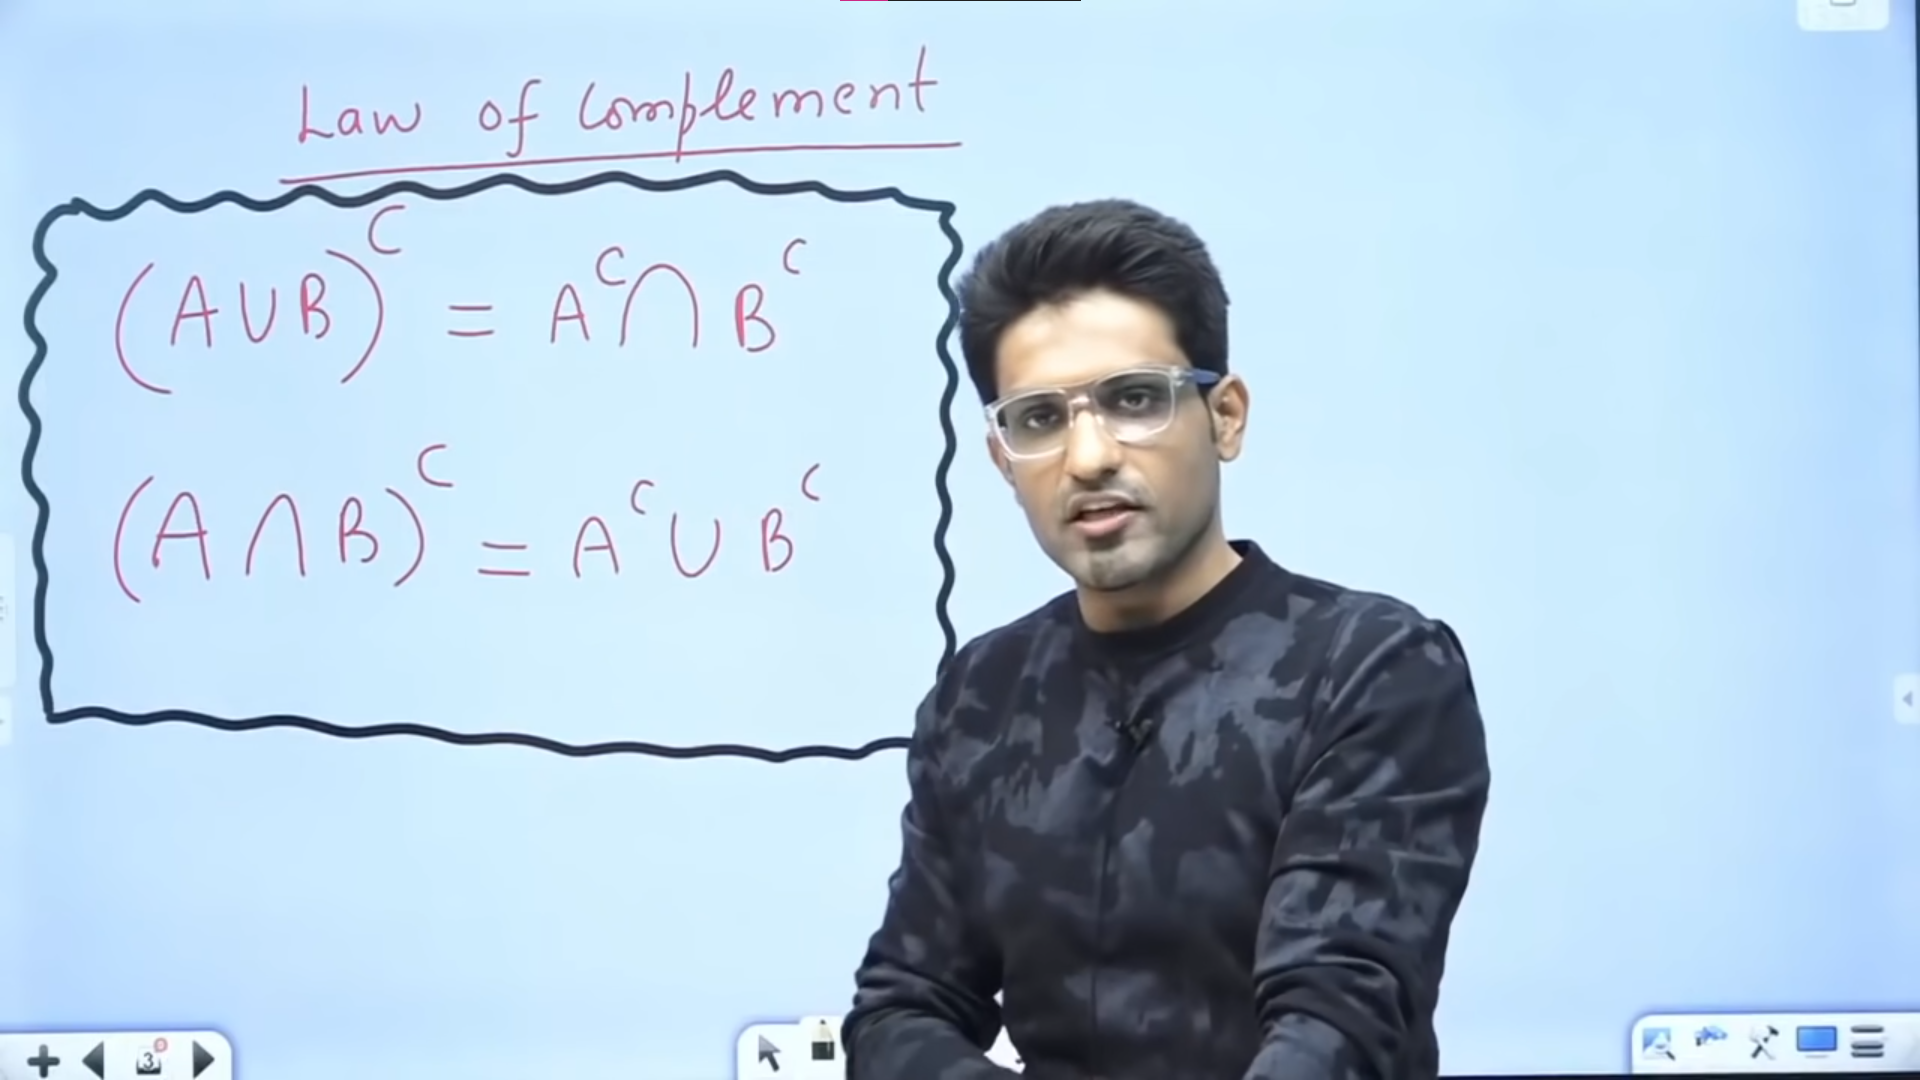 Law of Complement
(A∪B)ᶜ = Aᶜ∩Bᶜ
(A∩B)ᶜ = Aᶜ∪Bᶜ
3